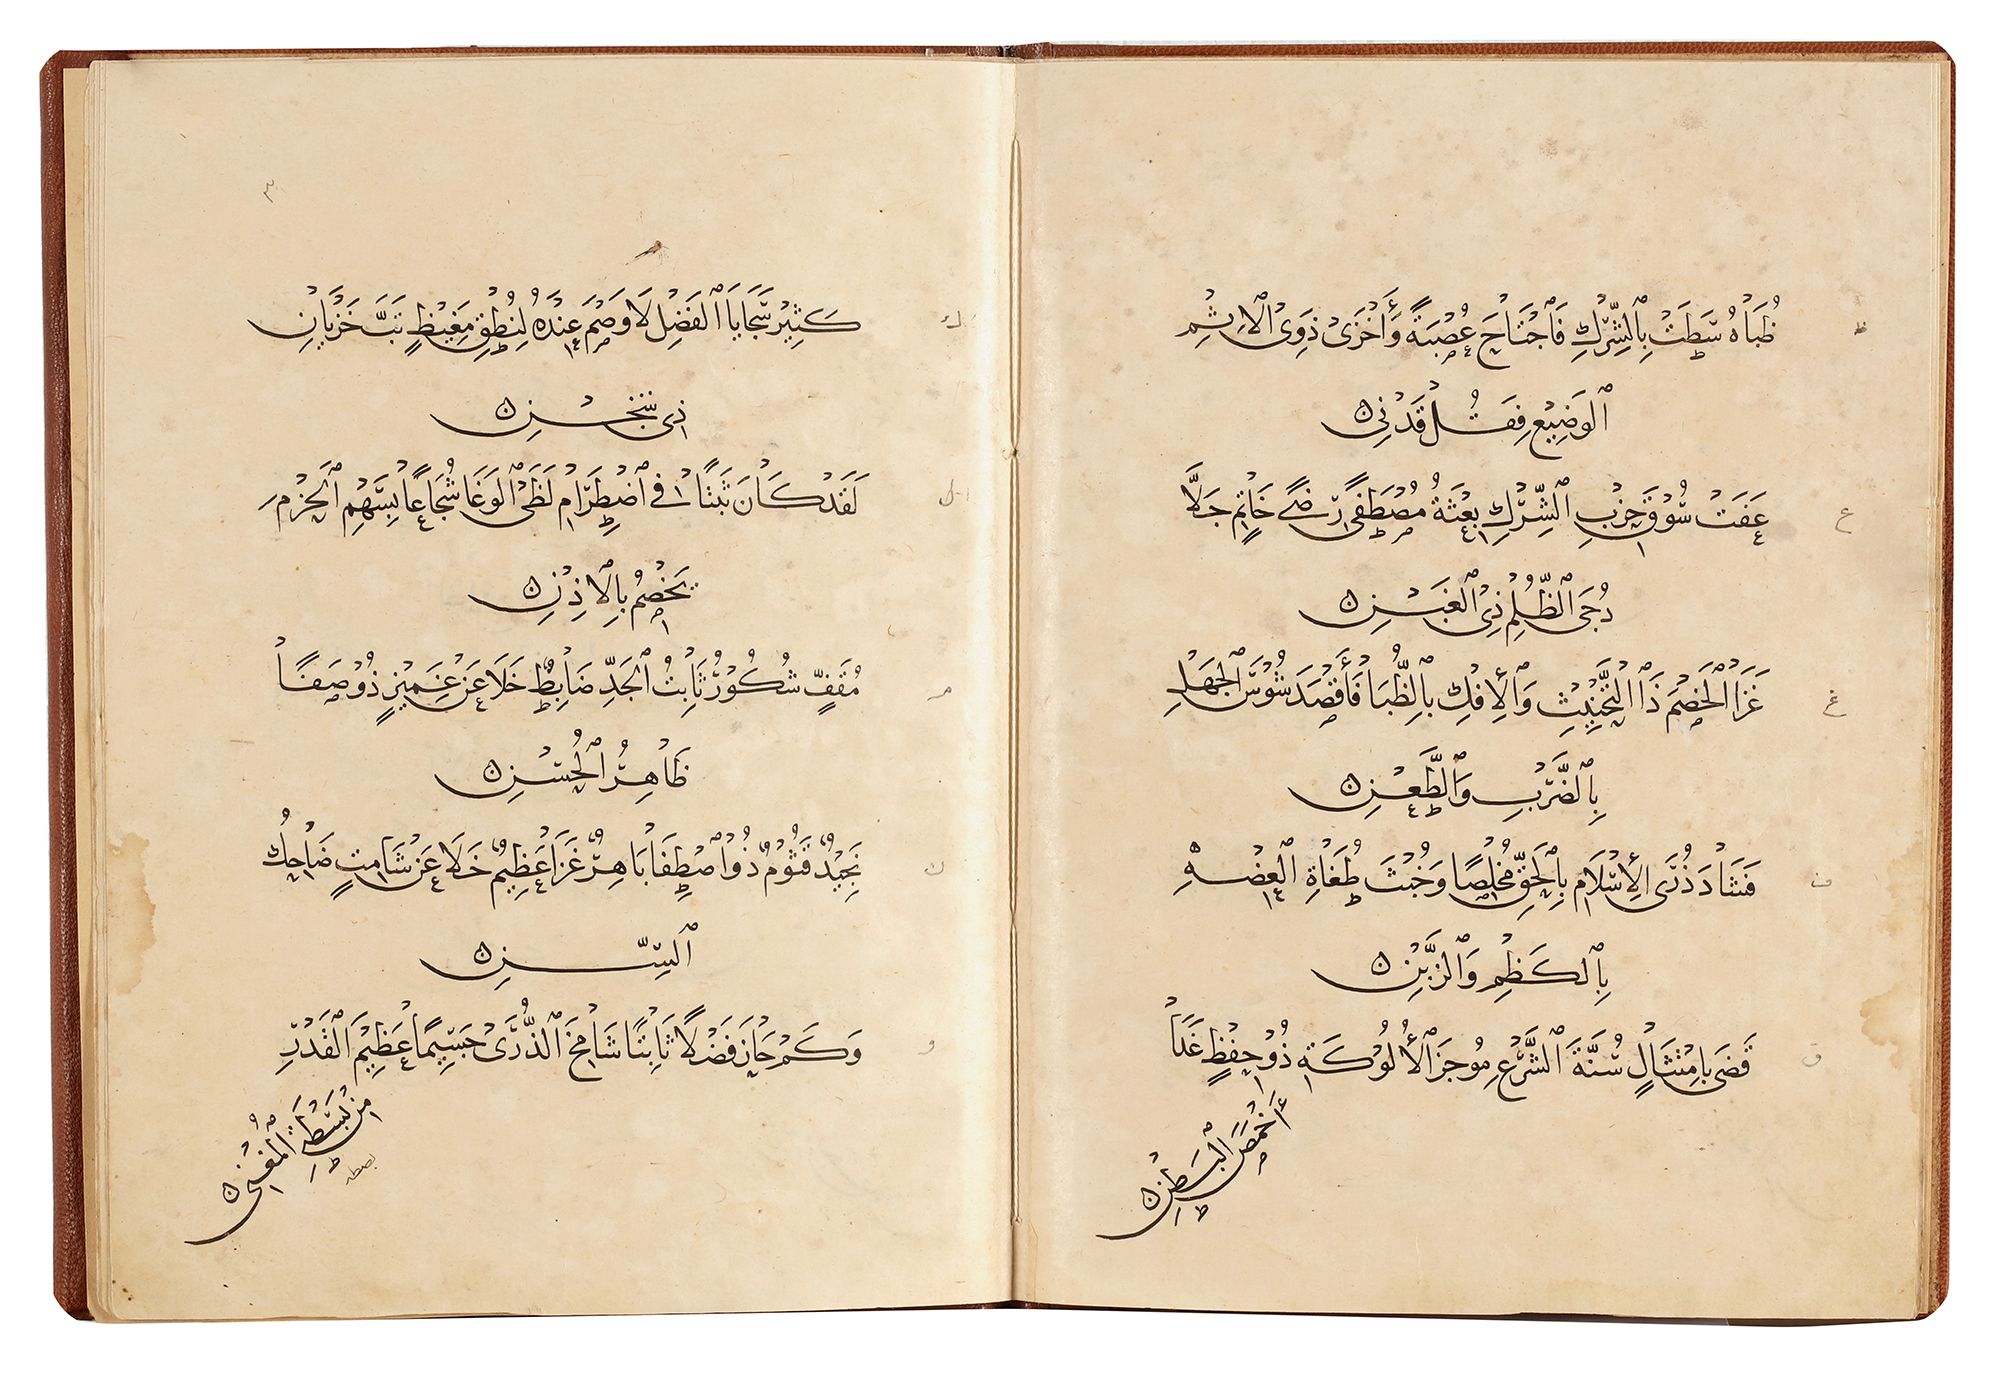 ظ
ظُبَاهُ سَطَتْ بِالشِّرْكِ فَاجْتَاحَ عُصْبَةً وَأَخْزَىٰ ذَوِى الْإِثْمِ
الْوَضِيْعِ فَقُلْ قَدْنِى
ع
عَفَتْ سُوْقَ حِزْبِ الشِّرْكِ بِعْثَةُ مُصْطَفًى رَضِىٍّ خَاتِمٍ جَلَّا
دُجَى الظُّلْمِ ذِى الْغَبْنِ
غ
غَزَا الْخَصْمَ ذَا التَّخْبِيْثِ وَالْإِفْكِ بِالظُّبَا فَأَقْصَدَ شُوْسَ الْجَهْلِ
بِالضَّرْبِ وَالطَّعْنِ
ف
فَشَادَ ذُرَى الْإِسْلَامِ بِالْحَقِّ مُخْلِصًا وَجُثَّتْ طُغَاةِ الْعِضْهِ
بِالْكَظْمِ وَالزَّبْنِ
ق
قَضَى بِامْتِثَالٍ سُنَّةَ الشَّرْعِ مُوجَزَ الْأُلُوْكَةِ ذُوْ حِفْظٍ غَدَا
أَخْمَصَ الْبَطْنِ
٣
ك
كَثِيْرُ سَجَايَا الْفَضْلِ لَا وَصْمَ عِنْدَهُ لِنُطْقِ مَغِيْظٍ تَبَّ خَزْيَانَ
ذِى شَخْنِ
ل
لَقَدْ كَانَ ثَبْتًا فِى اضْطِرَامِ لَظَى الْوَغَا شُجَاعًا بِسَهْمِ الْحَزْمِ
يَخْصِمُ بِالْإِذْنِ
م
مُقَفٍّ شُكُوْرٌ ثَابِتُ الْجَدِّ ضَابِطٌ خَلَا عَنْ غَمِيْزٍ ذُوْ صَفًا
ظَاهِرُ الْحُسْنِ
ن
نَجِيْدٌ قَثُوْمٌ ذُو اصْطِفَا بَاهِرٌ غَزَا عَظِيْمٌ خَلَا عَنْ شَامِتٍ ضَاحِكُ
السِّنِّ
و
وَكَمْ حَازَ فَضْلًا ثَابِتًا شَامِخَ الذُّرَى جَسِيْمًا عَظِيْمَ الْقَدْرِ
مِنْ بَسْطَةِ الْمُغْنِى
بصطه